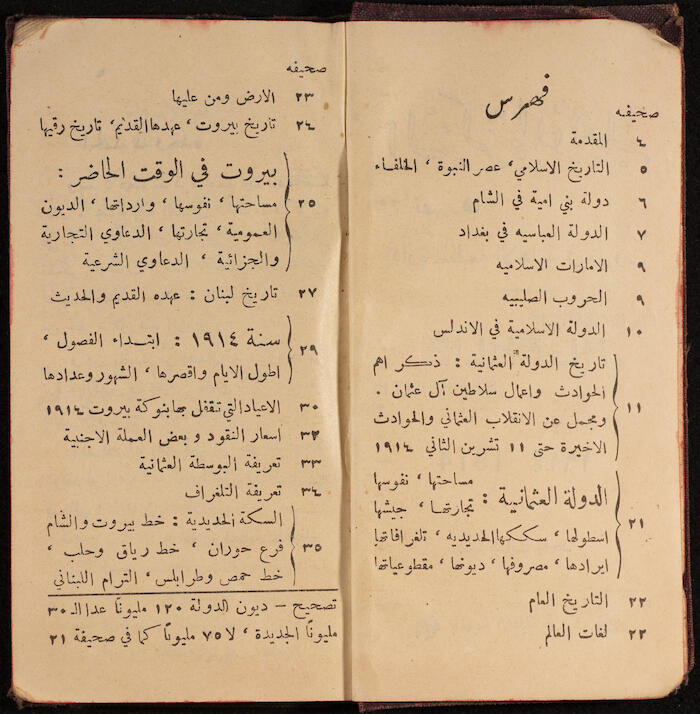 فهرس
صحيفه
٤ المقدمة
٥ التاريخ الاسلامي، عصر النبوة، الخلفاء
٦ دولة بني امية في الشام
٧ الدولة العباسيه في بغداد
٩ الامارات الاسلاميه
٩ الحروب الصليبيه
١٠ الدولة الاسلامية في الاندلس
تاريخ الدولة العثمانية : ذكر اهم
الحوادث واعمال سلاطين آل عثمان .
١١ ومجمل عن الانقلاب العثماني والحوادث
الاخيرة حتى ١١ تشرين الثاني ١٩١٤
مساحتها، نفوسها
الدولة العثمانية :
تجارتها، جيشها
٢١ اسطولها، سككها الحديديه، تلغرافاتها
ايرادها، مصروفها، ديونها، مقطوعياتها
٢٢ التاريخ العام
٢٢ لغات العالم
صحيفه
٢٣ الارض ومن عليها
٢٤ تاريخ بيروت، عهدها القديم، تاريخ رقيها
بيروت في الوقت الحاضر :
٢٥ مساحتها، نفوسها، وارداتها، الديون
العمومية، تجارتها، الدعاوي التجارية
والجزائية، الدعاوي الشرعية
٢٧ تاريخ لبنان : عهده القديم والحديث
سنة ١٩١٤ : ابتداء الفصول،
٢٩
اطول الايام واقصرها، الشهور وعدادها
٣٠ الاعياد التي تقفل بها بنوكة بيروت ١٩١٤
٣٢ اسعار النقود و بعض العملة الاجنبية
٣٣ تعريفة البوسطة العثمانية
٣٤ تعريفة التلغراف
السكة الحديدية : خط بيروت والشام
٣٥ فرع حوران، خط رياق وحلب،
خط حمص وطرابلس، الترام اللبناني
تصحيح – ديون الدولة ١٢٠ مليونًا عدا الـ ٣٠
مليونًا الجديدة، لا ٧٥ مليونًا كما في صحيفة ٢١